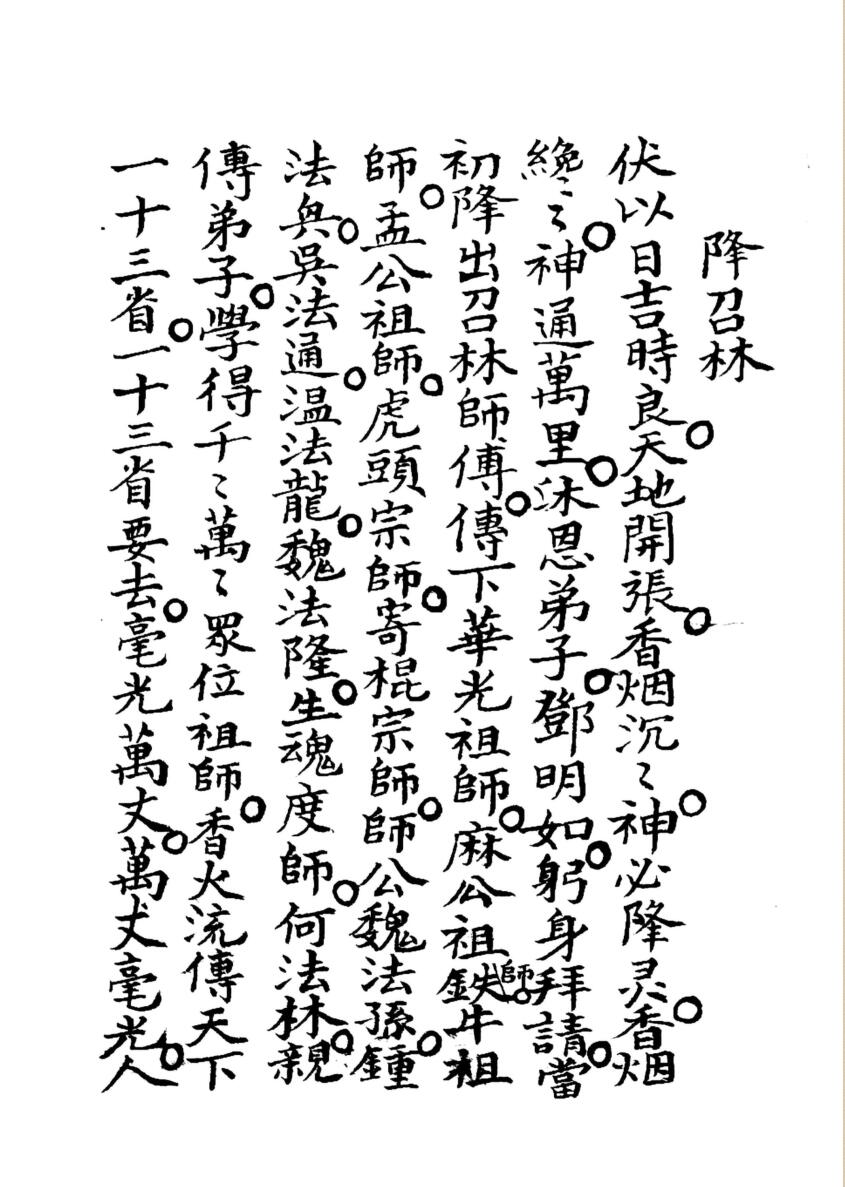 降召林
伏以日吉時良。天地開張。香烟沉〻。神必降灵。香烟
纔〻。神通萬里。沐恩弟子。鄧明如。躬身拜請。當
初降出召林師傅。傳下華光祖師。麻公祖師。鉄牛祖
師。孟公祖師。虎頭宗師。寄棍宗師。師公魏法孫。鍾
法興。吳法通。温法龍。魏法隆。生魂度師。何法林。親
傳弟子。學得千〻萬〻眾位祖師。香火流傳天下
一十三省。一十三省要去。毫光萬丈。萬丈毫光。人